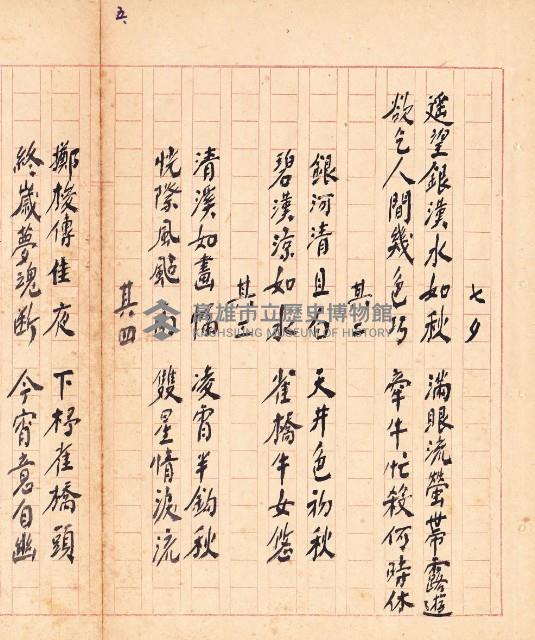 五、
七夕
遙望銀漢水如秋 滿眼流螢帶露遊
欲乞人間幾色巧 牽牛忙殺何時休
其二
銀河清且石 天井色初秋
碧漢涼如水 雀橋牛女悠
其三
清漢如畫 凌霄半鈎秋
恍際風颭 雙星情淚流
其四
擲梭傳佳夜 下杼雀橋頭
終歲夢魂斷 今宵意自幽
高雄市立歷史博物館
KAOHSIUNG MUSEUM OF HISTORY